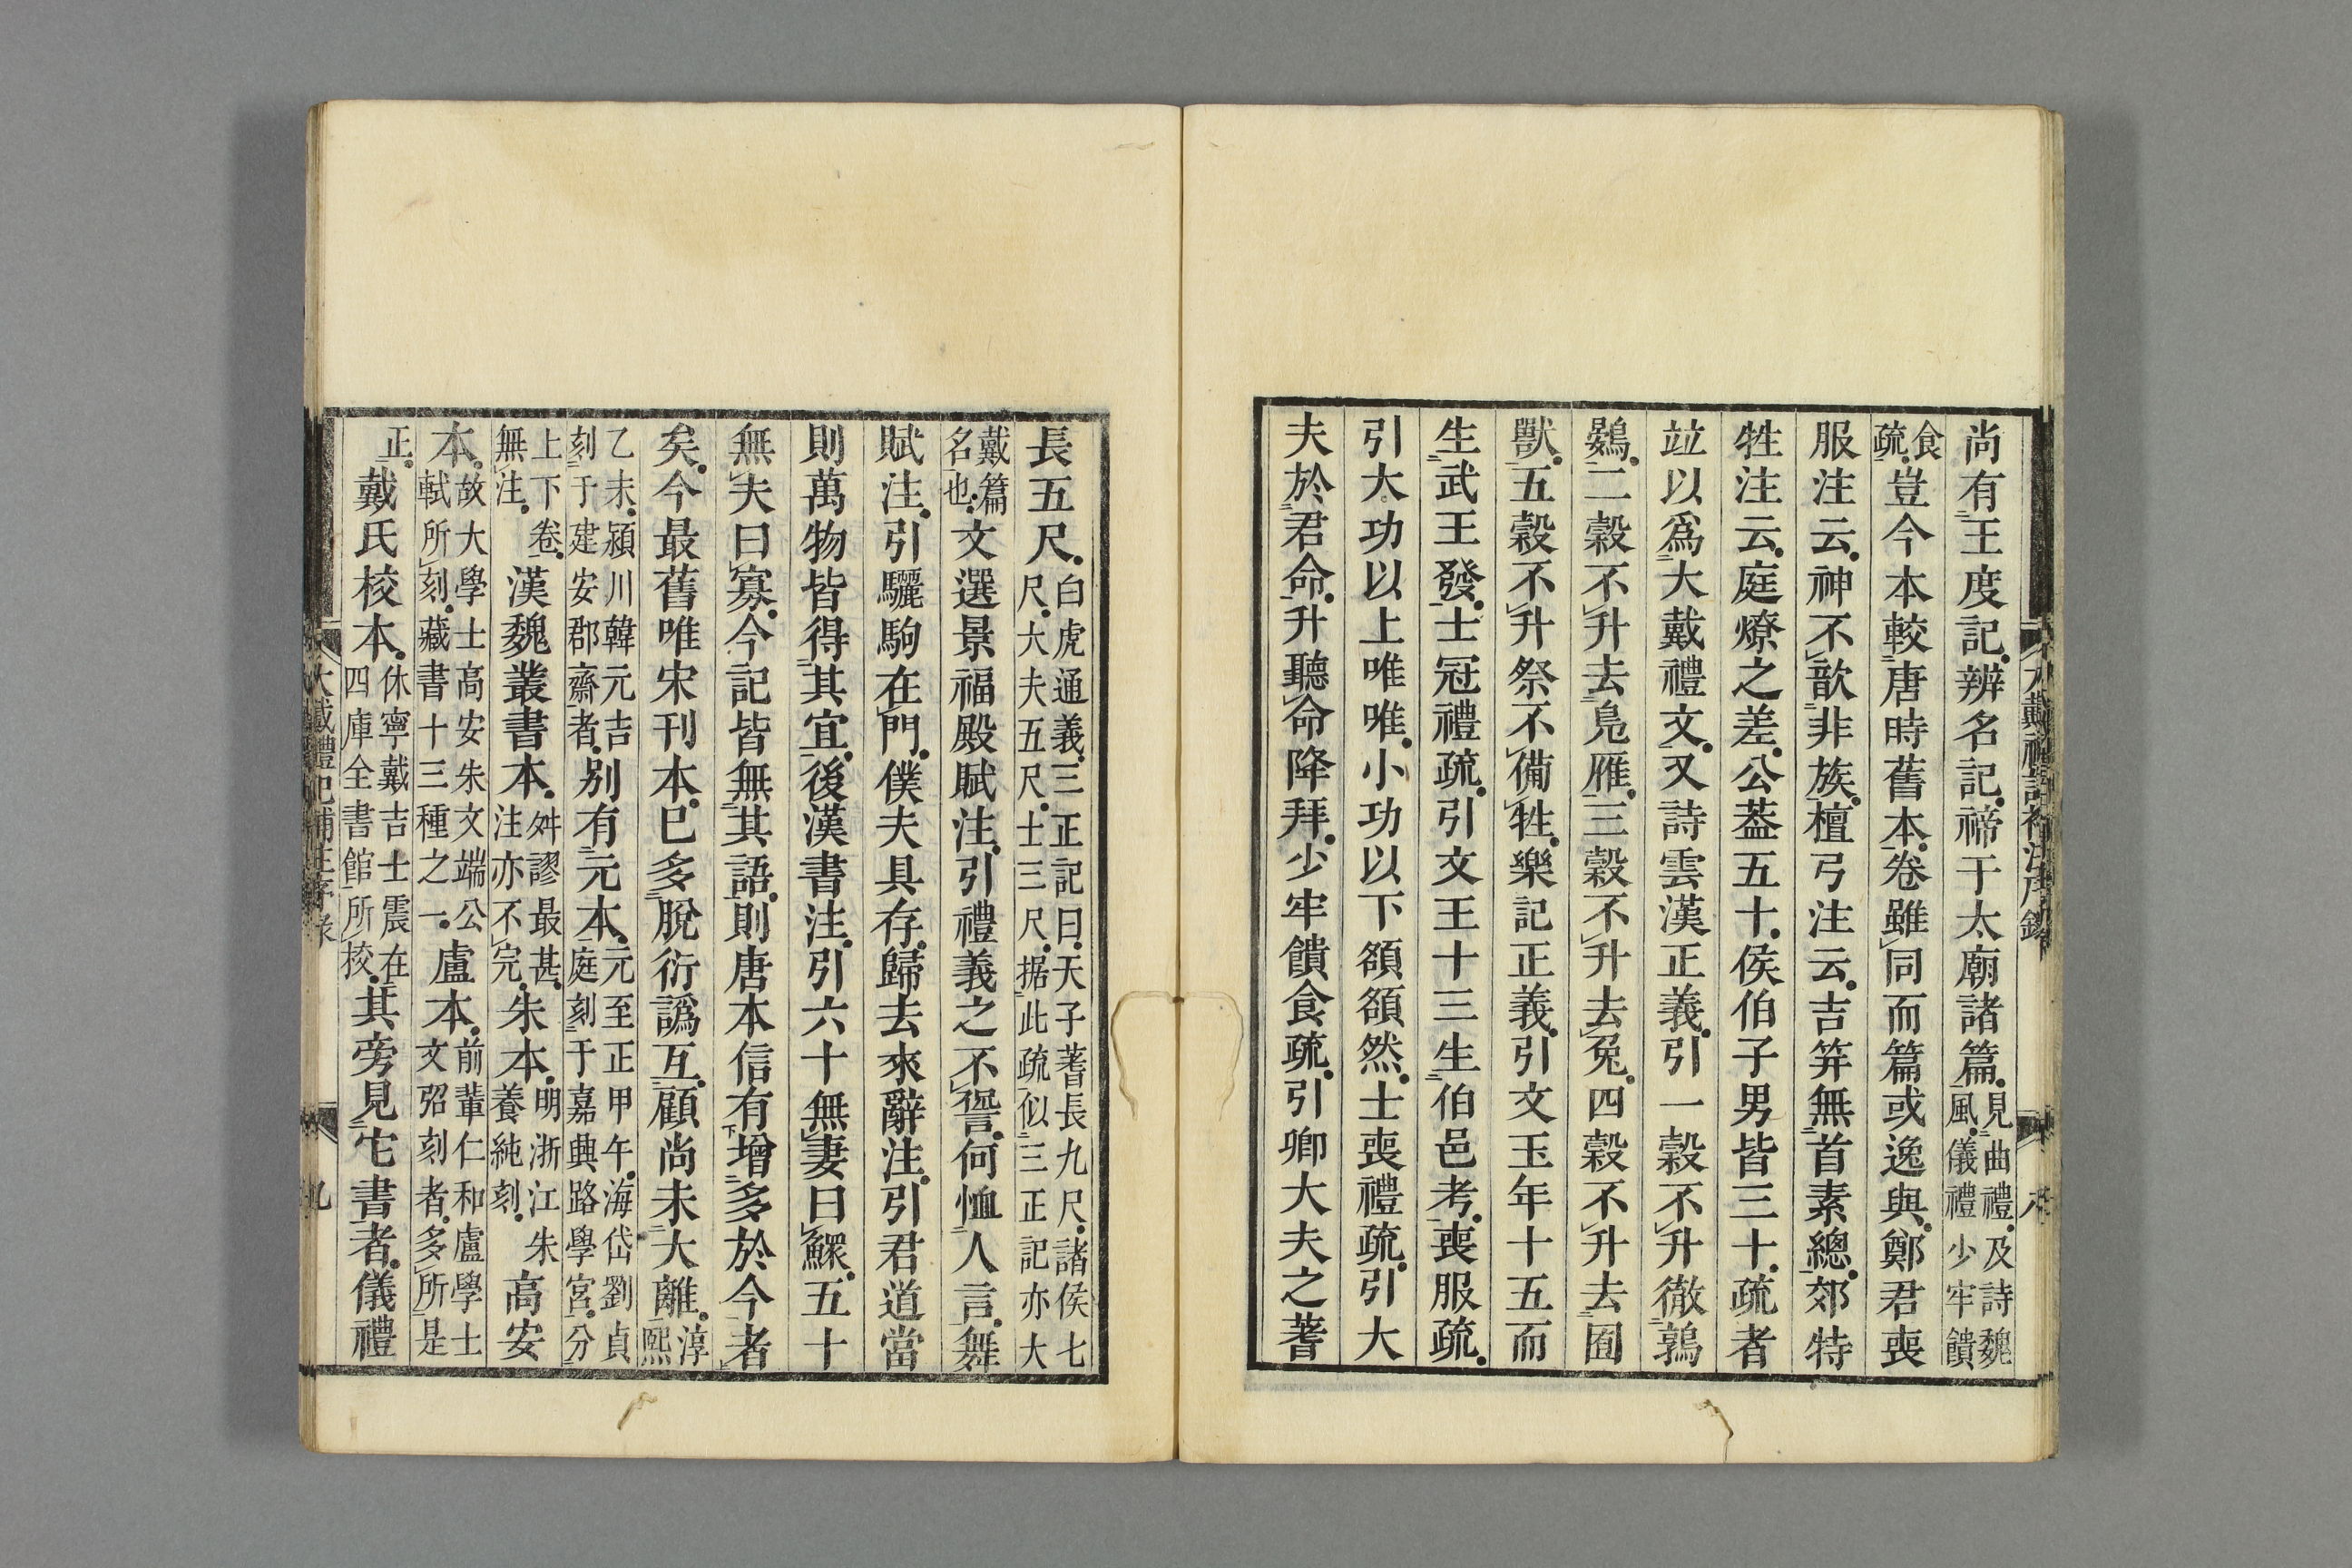 尚有王度記辨名記禘于太廟諸篇見曲禮及詩魏風儀禮少牢饋
食疏豈今本較唐時舊本卷雖同而篇或逸與鄭君喪
服注云神不歆非族檀弓注云吉笄無首素總郊特
牲注云庭燎之差公葢五十侯伯子男皆三十疏者
竝以爲大戴禮文又詩雲漢正義引一穀不升徹鶉
鷃二穀不升去鳧雁三穀不升去兔四穀不升去囿
獸五穀不升祭不備牲樂記正義引文王年十五而
生武王發士冠禮疏引文王十三生伯邑考喪服疏
引大功以上唯唯小功以下額額然士喪禮疏引大
夫於君命升聽命降拜少牢饋食疏引卿大夫之蓍
長五尺白虎通義三正記曰天子蓍長九尺諸侯七尺大夫五尺士三尺据此疏似三正記亦大
戴篇名也文選景福殿賦注引禮義之不諐何恤人言舞
賦注引驪駒在門僕夫具存歸去來辭注引君道當
則萬物皆得其宜後漢書注引六十無妻曰鰥五十
無夫曰寡今記皆無其語則唐本信有增多於今者
矣今最舊唯宋刊本已多脫衍譌互顧尚未大離淳熙
乙未潁川韓元吉刻于建安郡齋者別有元本元至正甲午海岱劉貞庭刻于嘉興路學宮分
上下卷無注漢魏叢書本舛謬最甚注亦不完朱本明浙江朱養純刻高安
本故大學士高安朱文端公軾所刻藏書十三種之一盧本前輩仁和盧學士文弨刻者多所是
正戴氏校本休寧戴吉士震在四庫全書館所校其旁見它書者儀禮
大戴禮記補注序錄
八
大戴禮記補注序錄
九